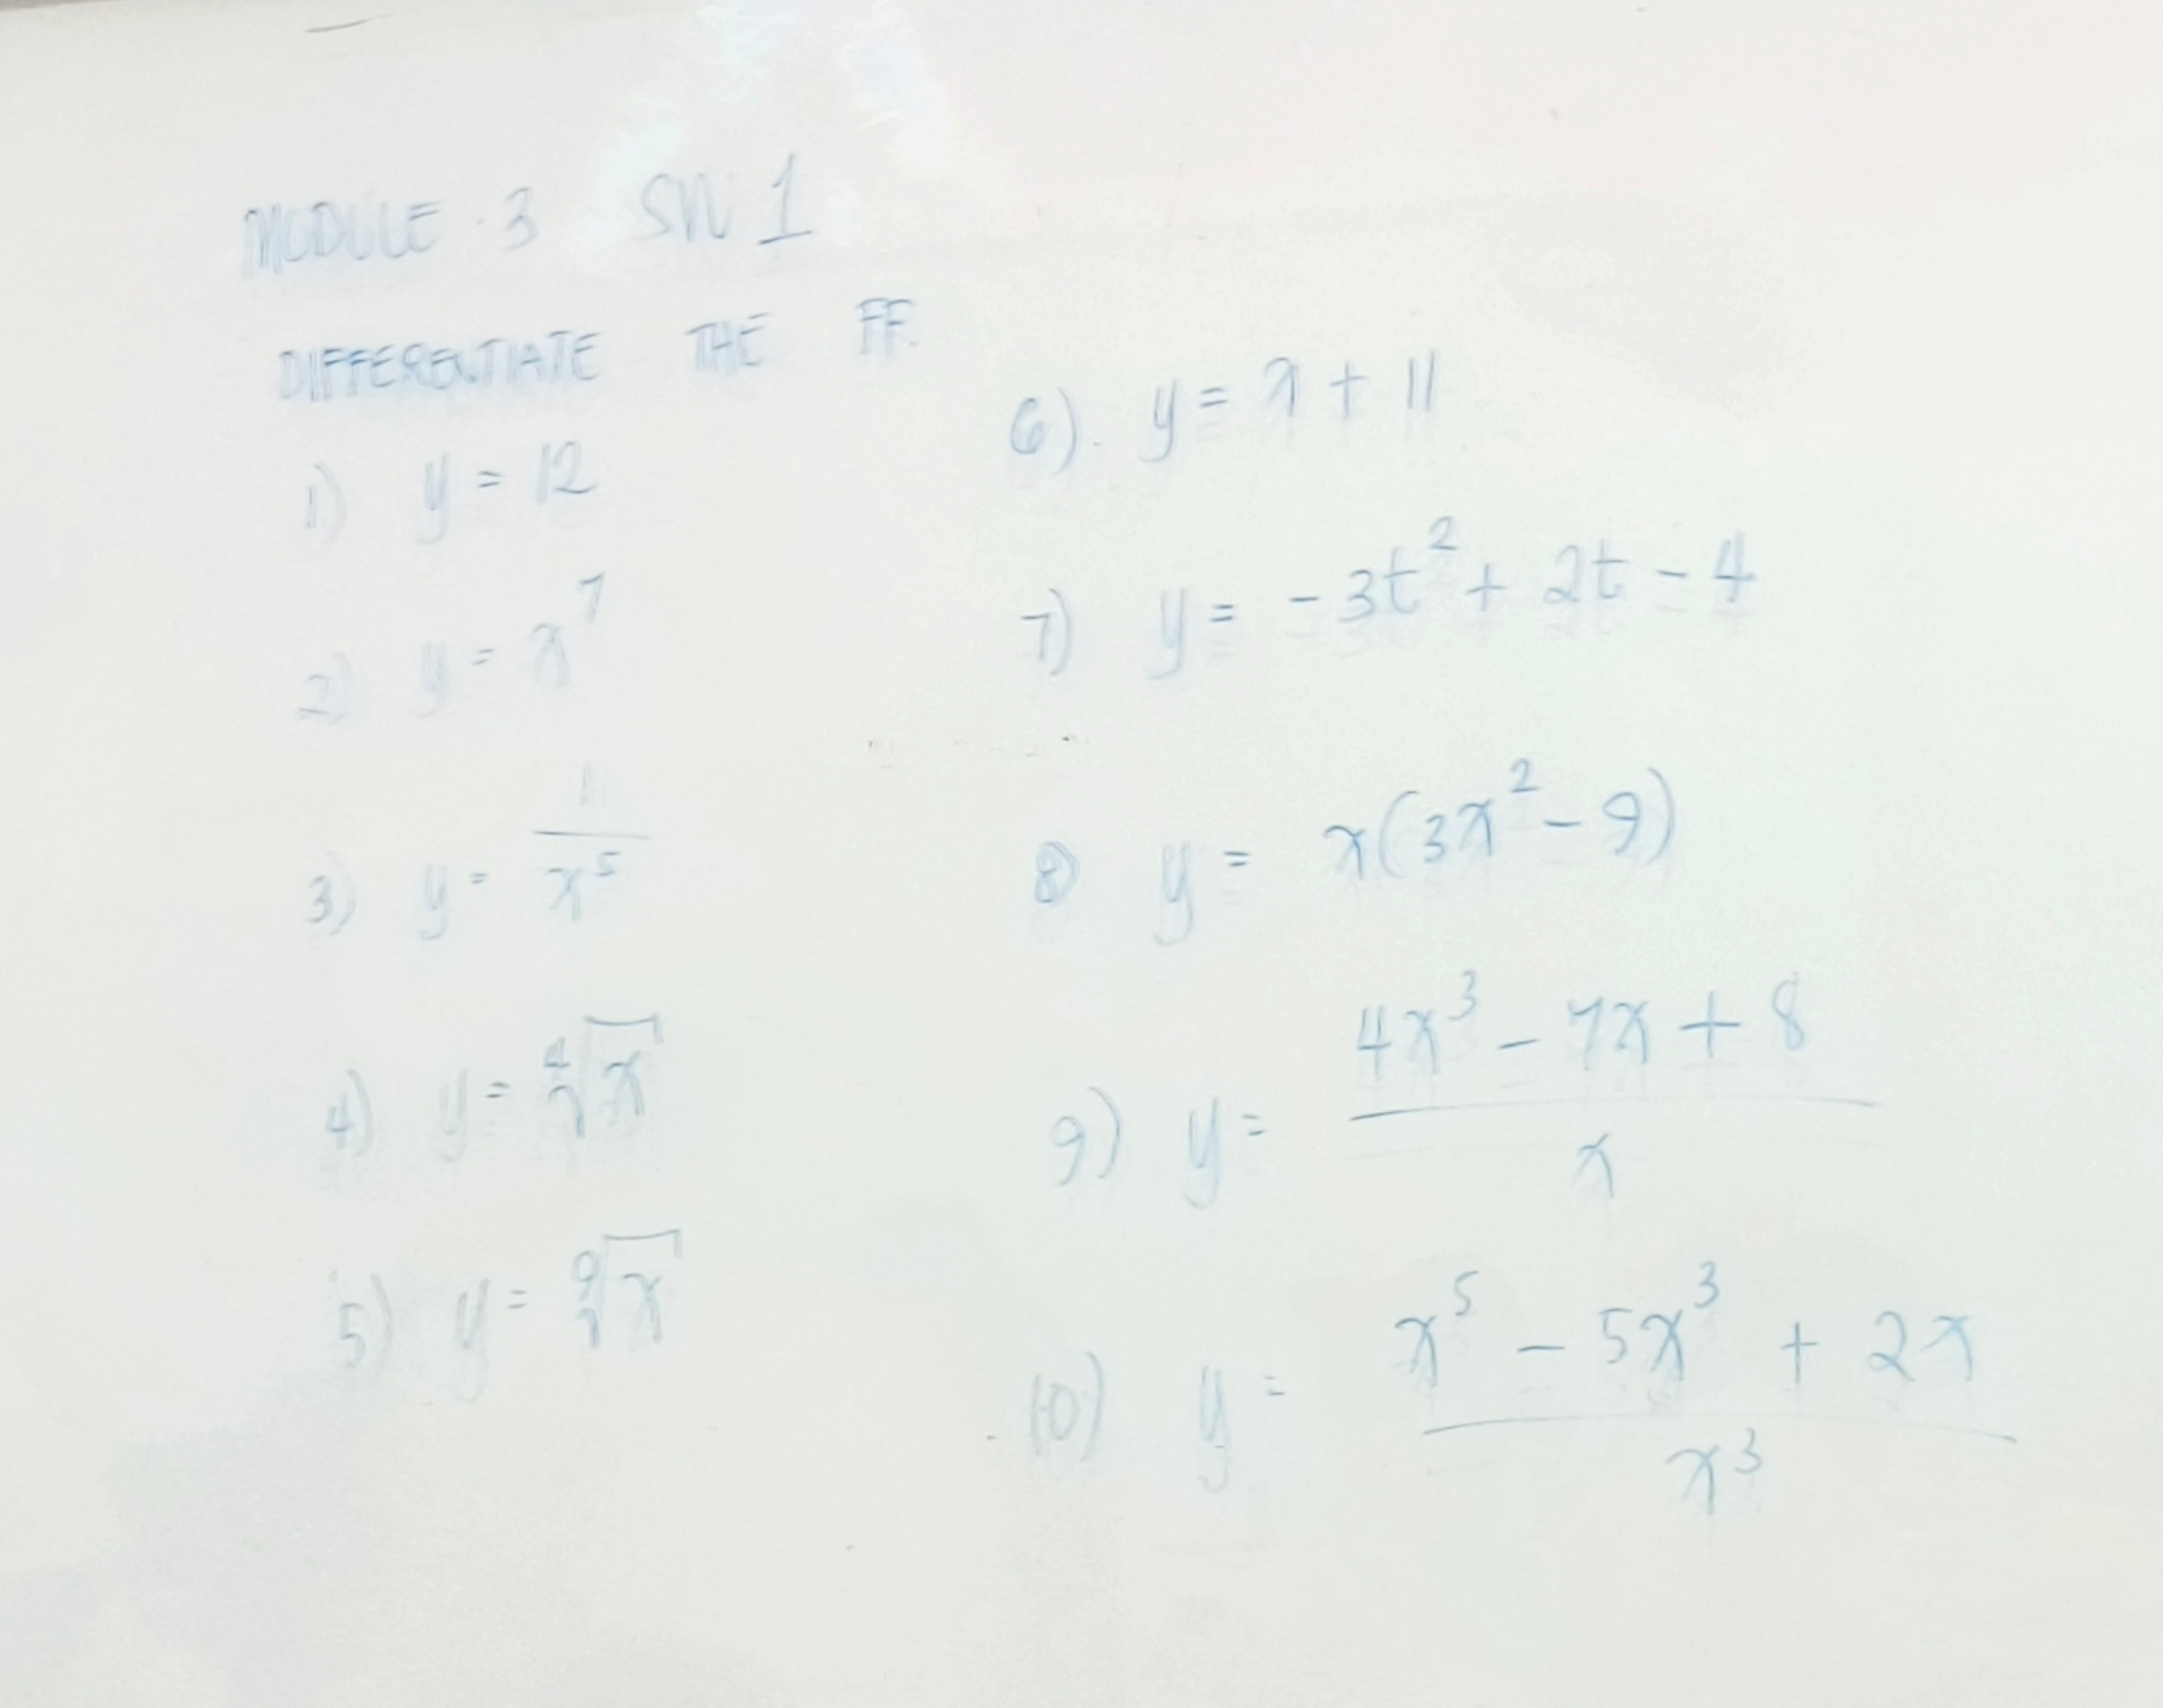 MODULE 3 SW 1
DIFFERENTIATE THE FF.
1) y = 12
2) y = x⁷
3) y = 1/x⁵
4) y = ⁴√x
5) y = ⁹√x
6). y = x + 11
7) y = -3t² + 2t - 4
8) y = x(3x² - 9)
9) y = (4x³ - 7x + 8)/x
10) y = (x⁵ - 5x³ + 2x)/x³